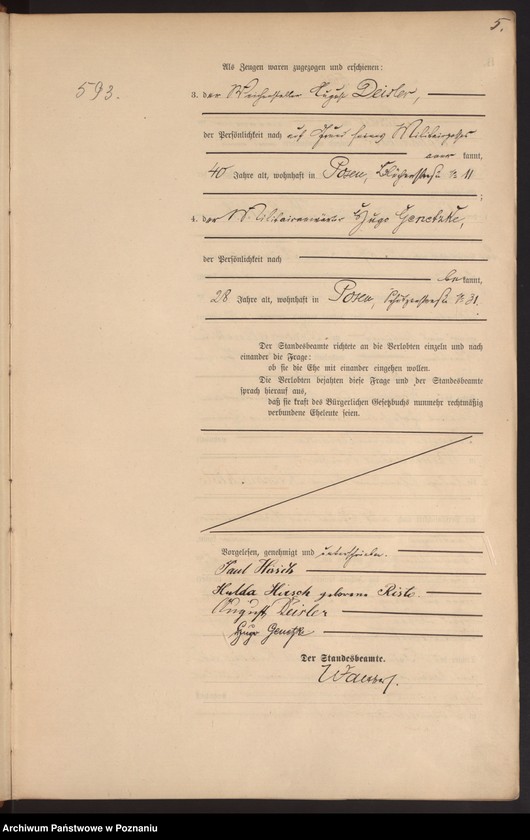 5.
Als Zeugen waren zugezogen und erschienen:
593.
3. der August Deisler,
der Persönlichkeit nach auf Grund seines Militairpasses
kannt,
40 Jahre alt, wohnhaft in Posen, № 11
;
4. der Militairanwärter Hugo Genetzke,
der Persönlichkeit nach
bekannt,
28 Jahre alt, wohnhaft in Posen, № 31.
Der Standesbeamte richtete an die Verlobten einzeln und nach
einander die Frage:
ob sie die Ehe mit einander eingehen wollen.
Die Verlobten bejahten diese Frage und der Standesbeamte
sprach hierauf aus,
daß sie kraft des Bürgerlichen Gesetzbuchs nunmehr rechtmäßig
verbundene Eheleute seien.
Vorgelesen, genehmigt und unterschrieben.
Paul Hirsch
Hulda Hirsch geborene
August Deisler
Hugo Genetzke
Der Standesbeamte.
Archiwum Państwowe w Poznaniu